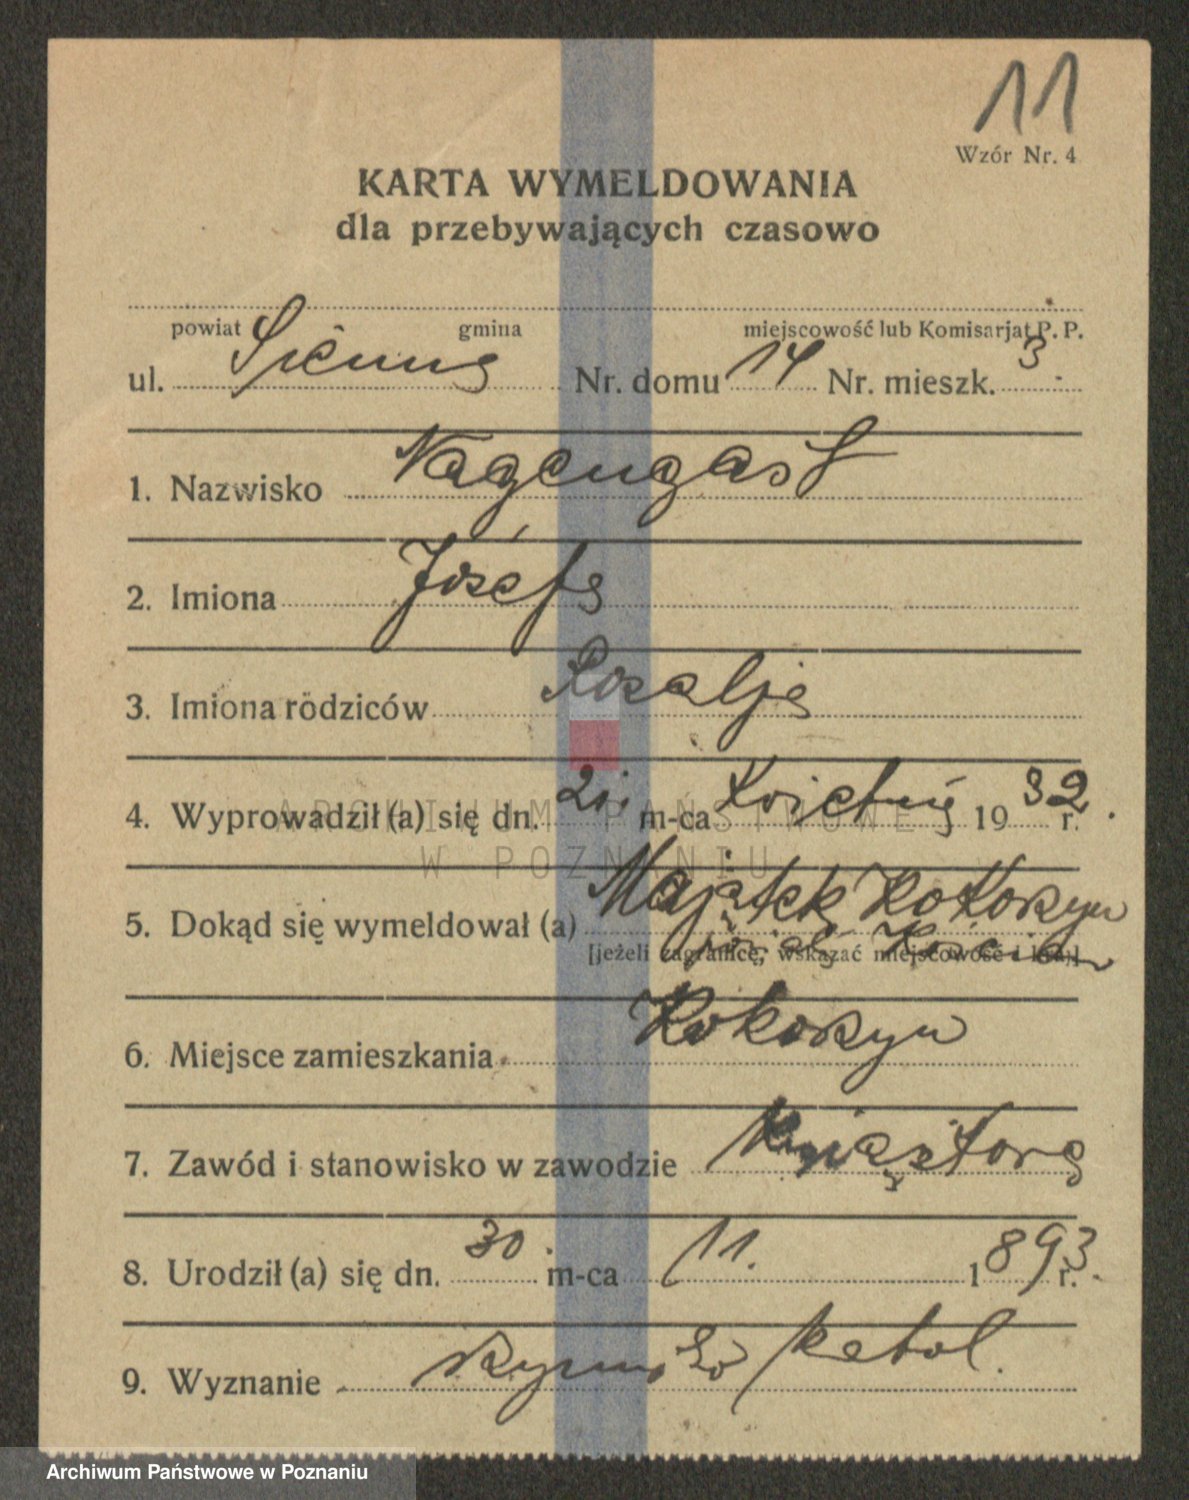 11
Wzór Nr. 4
KARTA WYMELDOWANIA
dla przebywających czasowo
powiat gmina miejscowość lub Komisarjat P. P.
ul. Sienna Nr. domu 14 Nr. mieszk. 3
1. Nazwisko Nagengast
2. Imiona Józefa
3. Imiona rodziców Rozalja
4. Wyprowadził (a) się dn. m-ca Kwietnia 1932 r.
ARCHIWUM PAŃSTWOWE
W POZNANIU
5. Dokąd się wymeldował (a) Majątek Rokoszyn
[jeżeli zagranicę, wskazać miejscowość i kraj]
6. Miejsce zamieszkania Rokoszyn
7. Zawód i stanowisko w zawodzie
8. Urodził (a) się dn. 30. m-ca 11. 1893 r.
9. Wyznanie rzymsko katol.
Archiwum Państwowe w Poznaniu